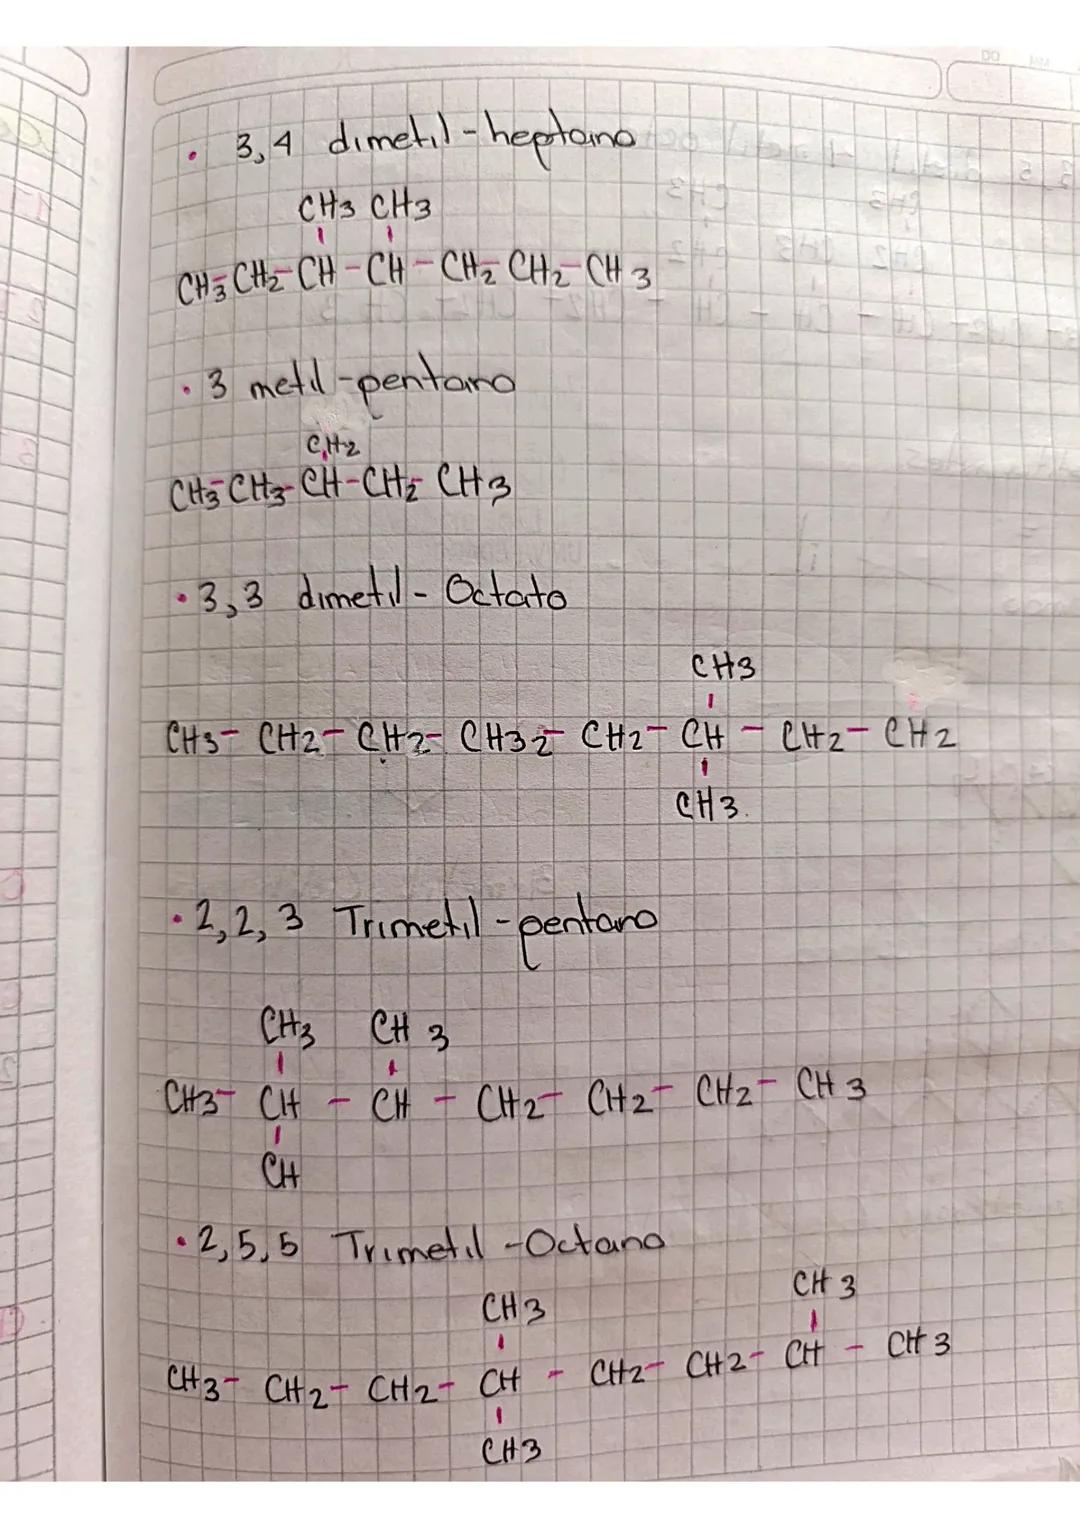 • 3,4 dimetil-heptano
CH3 CH3
CH3-CH2-CH-CH-CH2-CH2-CH3
• 3 metil-pentano
CH2
CH3-CH3-CH-CH2-CH3
• 3,3 dimetil-Octato
CH3
CH3-CH2-CH2-CH32-CH2-CH-CH2-CH2
CH3.
• 2,2,3 Trimetil-pentano
CH3 CH3
CH3-CH-CH-CH2-CH2-CH2-CH3
CH
• 2,5,5 Trimetil-Octano
CH3 CH3
CH3-CH2-CH2-CH-CH2-CH2-CH-CH3
CH3